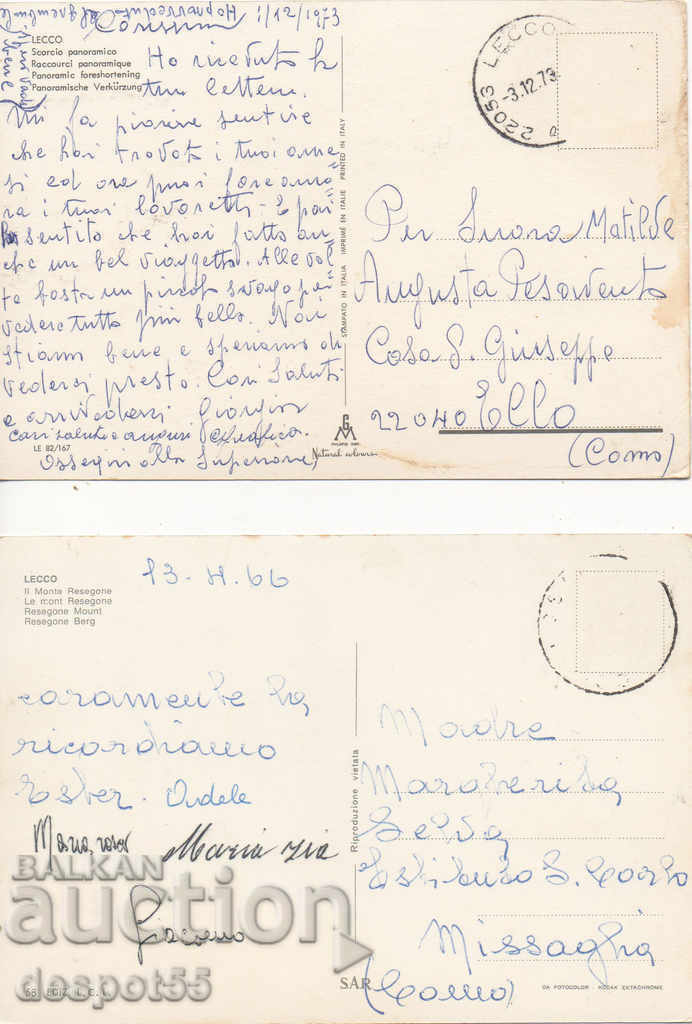 1/12/1973
LECCO
Scorcio panoramico
Raccourci panoramique
Panoramic foreshortening
Panoramische Verkürzung
Carissima
Ho ricevuto la
tua lettera.
Mi fa piacere sentire
che hai trovato i tuoi
ed ora puoi
i tuoi lavoretti. E poi
ho sentito che hai fatto an
che un bel viaggetto. Alle vol
te basta un piccolo svago per
vedere tutto più bello. Noi
stiamo bene e speriamo di
vederci presto. Cari Saluti
e arrivederci Giorgio
cari saluti e auguri
Ossequi alla Superiora
LE 82/167
STAMPATO IN ITALIA IMPRIMÉ EN ITALIE PRINTED IN ITALY
22053 LECCO
-3.12.73
Per Suora Matilde
Augusta Pesavento
Casa S. Giuseppe
22040 Ello
(Como)
GM
Natural colours
LECCO
Il Monte Resegone
Le mont Resegone
Resegone Mount
Resegone Berg
13-4.66
caramente la
ricordiamo
Ester. Odele
Maria rosa Maria Pia
Giacomo
Riproduzione vietata
Madre
Margherita
Selva
Istituto S. Carlo
Missaglia
(Como)
SAR
DA FOTOCOLOR - KODAK EKTACHROME
BALKAN
auction
despot55